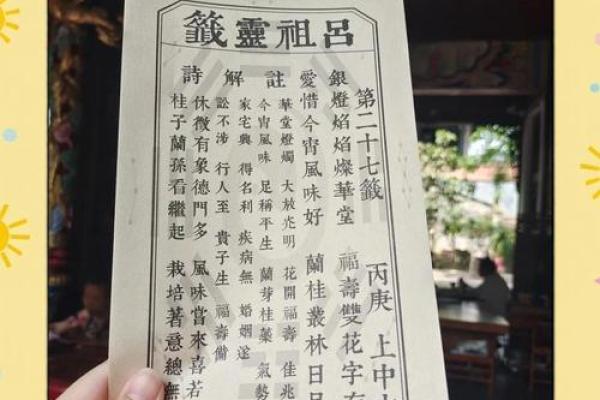 呂祖靈籤
第二十七籤 丙庚 上中
銀燈焰焰燦華堂 福壽雙花字
愛惜今宵風味好 蘭桂叢林日
註解詩
華堂燈燭 大放光明 花開福壽 佳兆
今宵風味 足稱平生 蘭芽桂蕊 氣勢
家宅興 得名利 疾病無 婚姻遂
訟不涉 行人至 貴子生 福壽備
休徵有象德門多 風味當來喜若
桂子蘭孫看繼起 栽培著意總無